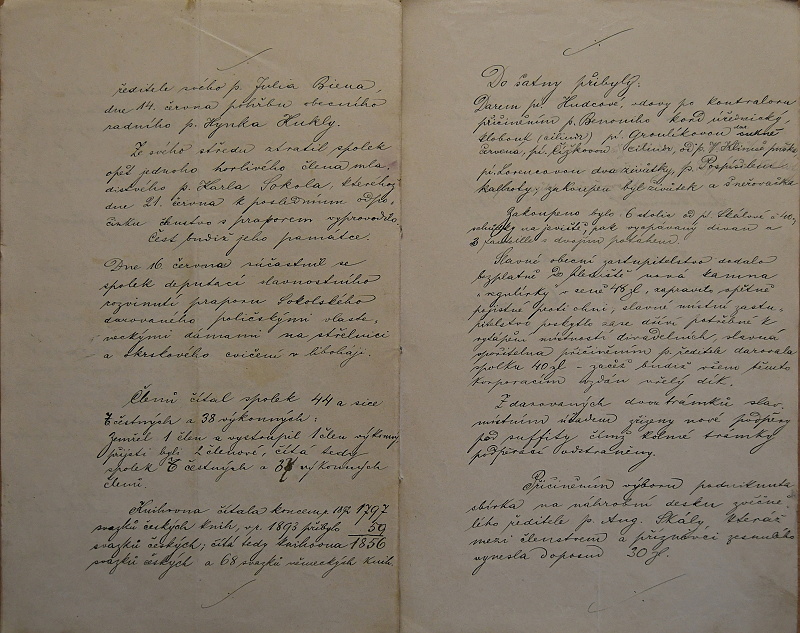 ředitele svého p. Julia Biena,
dne 14. června pohřbu obecního
radního p. Hynka Hukly.
Ze svého středu ztratil spolek
opět jednoho horlivého člena mla
distvého p. Karla Sokola, kteréhož
dne 21. června k poslednímu odpo,
činku členstvo s praporem vyprovodilo
Čest budiž jeho památce.
Dne 16. června súčastnil se
spolek deputací slavnostního
rozvinutí praporu Sokolského
darovaného poličskými vlaste,
neckými dámami na střelnici
a škrskového cvičení v libohaji.
Členů čítal spolek 44 a sice
čestných a 38 výkonných:
Zemřel 1 člen a vystoupil 1 člen výkonný
přijati byli 2 členové, čítá tedy
spolek čestných a výkonných
členů.
Knihovna čítala koncem r. 1797
svazků českých knih, v r. 1893 přibylo 59
svazků českých; čítá tedy knihovna 1856
svazků českých a 68 svazků německých knih.
Do šatny přibylo:
Darem pí. Hudcové, vdovy po kontroloru
přičiněním p. Benoniho kord úřednický,
klobouk (cilindr) pí. Groulíkovou
červená, pí. Ružkovou cilindr, od p. V.
pí. Lorencovou dva živůtky, p. Pospíšilem
kalhoty; zakoupen byl živůtek a šněrovačka
Zakoupeno bylo 6 stolic od p. Skálové á
na jeviště, pak vycpávaný divan a
2 s dvojím potahem.
Slavné obecní zastupitelstvo dodalo
bezplatně do jeviště nová kamna
"regulírky" v ceně 48 zl, zapravilo opětně
pojistné proti ohni, slavné místní zastu,
pitelstvo poskytlo zase dříví potřebné k
vytápění místností divadelních, slavná
spořitelna přičiněním p. ředitele darovala
spolku 40 zl – začež budiž všem těmto
korporacím vzdán vřelý dík.
Z darovaných dvou trámků slav.
místním úřadem zřízeny nové podpěry
pod suffity čímž kolmé trámky
podpěrací odstraněny.
Přičiněním výboru podniknuta
sbírka na náhrobní desku zvěčně,
lého ředitele p. Aug. Skály, kteráž
mezi členstvem a příznivci zesnulého
vynesla doposud 30 zl.